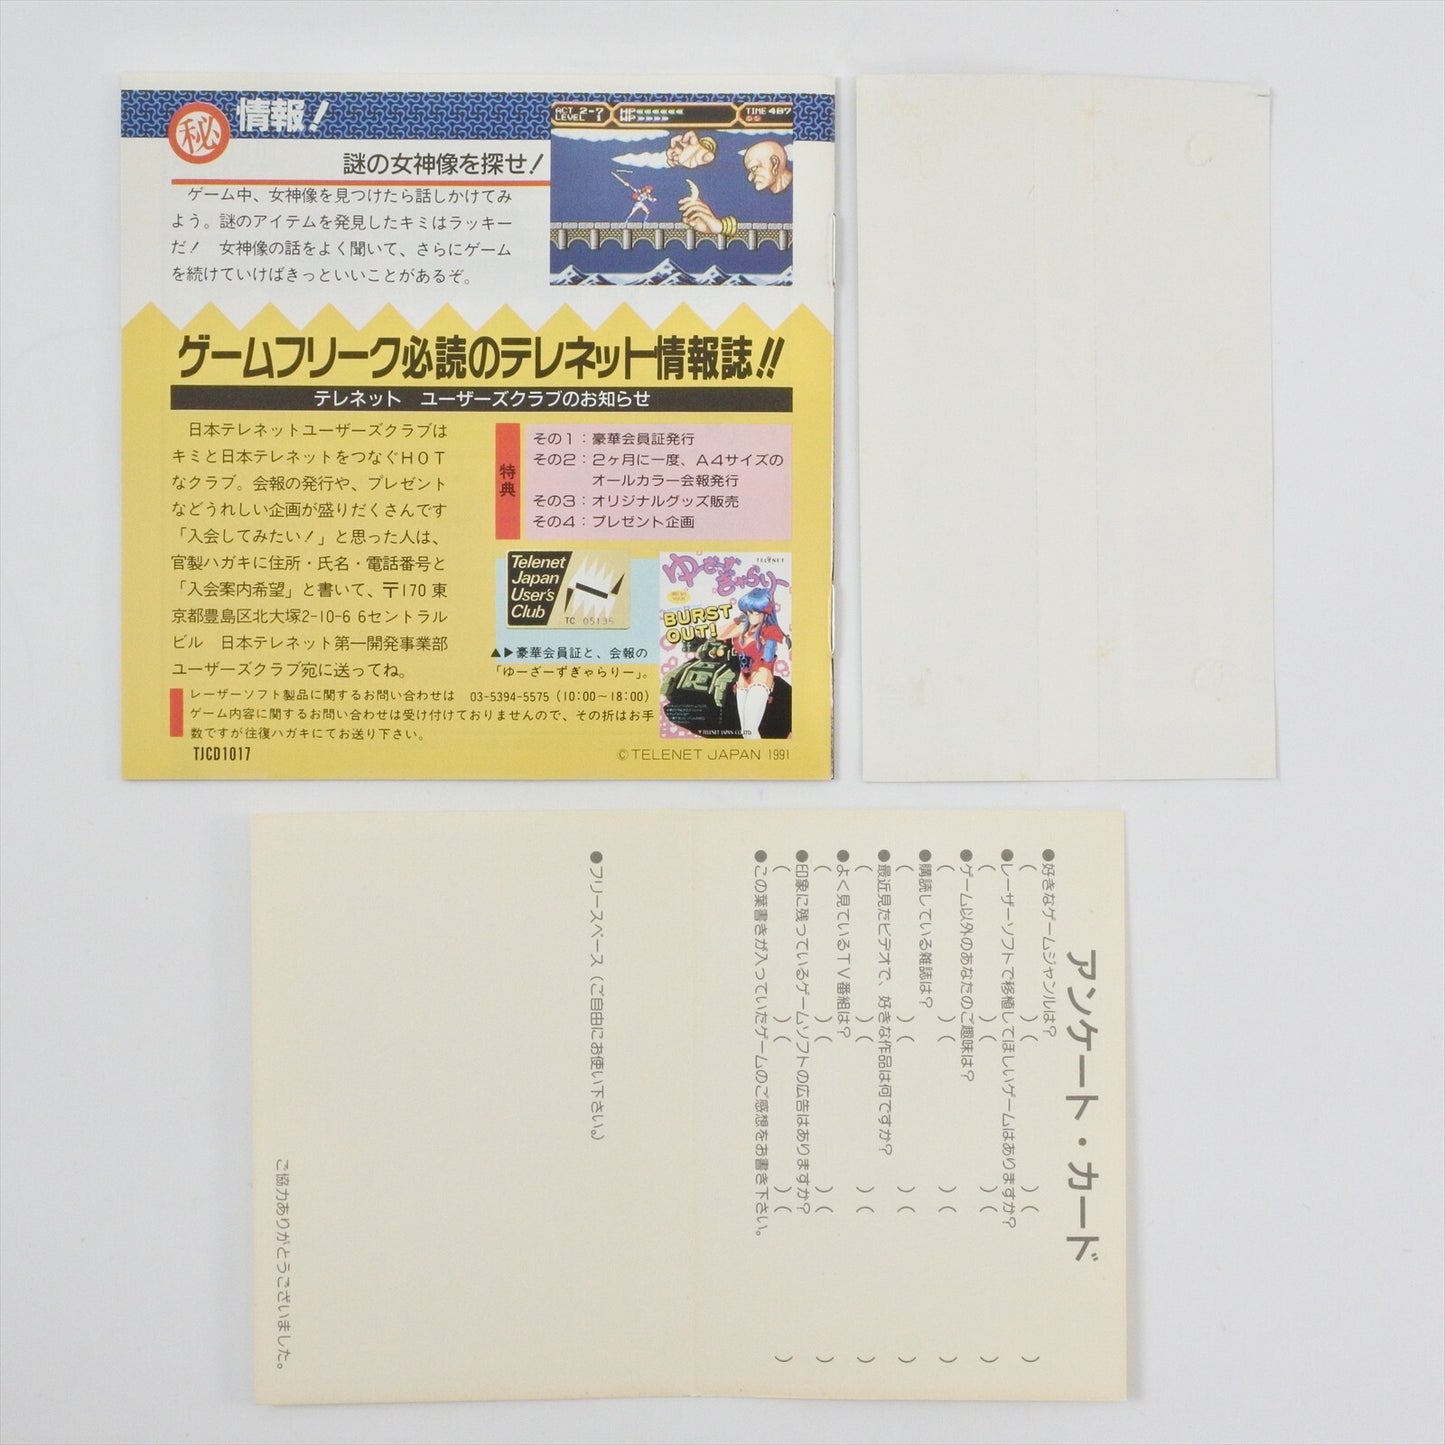 ㊙情報！
謎の女神像を探せ！
ゲーム中、女神像を見つけたら話しかけてみ
よう。謎のアイテムを発見したキミはラッキー
だ！　女神像の話をよく聞いて、さらにゲーム
を続けていけばきっといいことがあるぞ。
ACT 2-7
LEVEL 1
HP
WP
TIME 487
ゲームフリーク必読のテレネット情報誌!!
テレネット　ユーザーズクラブのお知らせ
日本テレネットユーザーズクラブは
キミと日本テレネットをつなぐHOT
なクラブ。会報の発行や、プレゼント
などうれしい企画が盛りだくさんです
「入会してみたい！」と思った人は、
官製ハガキに住所・氏名・電話番号と
「入会案内希望」と書いて、〒170 東
京都豊島区北大塚2-10-6 6セントラル
ビル　日本テレネット第一開発事業部
ユーザーズクラブ宛に送ってね。
特典
その1：豪華会員証発行
その2：2ヶ月に一度、A4サイズの
オールカラー会報発行
その3：オリジナルグッズ販売
その4：プレゼント企画
Telenet
Japan
User's
Club
TC 05135
TELENET
ゆーざーず
ぎゃらりー
BURST
OUT!
▼TELENET JAPAN CO.,LTD.
▲▶豪華会員証と、会報の
「ゆーざーずぎゃらりー」。
レーザーソフト製品に関するお問い合わせは　03-5394-5575（10:00～18:00）
ゲーム内容に関するお問い合わせは受け付けておりませんので、その折はお手
数ですが往復ハガキにてお送り下さい。
TJCD1017
©TELENET JAPAN 1991
アンケート・カード
●好きなゲームジャンルは？
（　）（　）（　）
●レーザーソフトで移植してほしいゲームはありますか？
（　）（　）（　）
●ゲーム以外のあなたのご趣味は？
（　）（　）（　）
●購読している雑誌は？
（　）（　）（　）
●最近見たビデオで、好きな作品は何ですか？
（　）（　）（　）
●よく見ているTV番組は？
（　）（　）（　）
●印象に残っているゲームソフトの広告はありますか？
（　）（　）（　）
●この葉書きが入っていたゲームのご感想をお書き下さい。
●フリースペース（ご自由にお使い下さい。）
ご協力ありがとうございました。